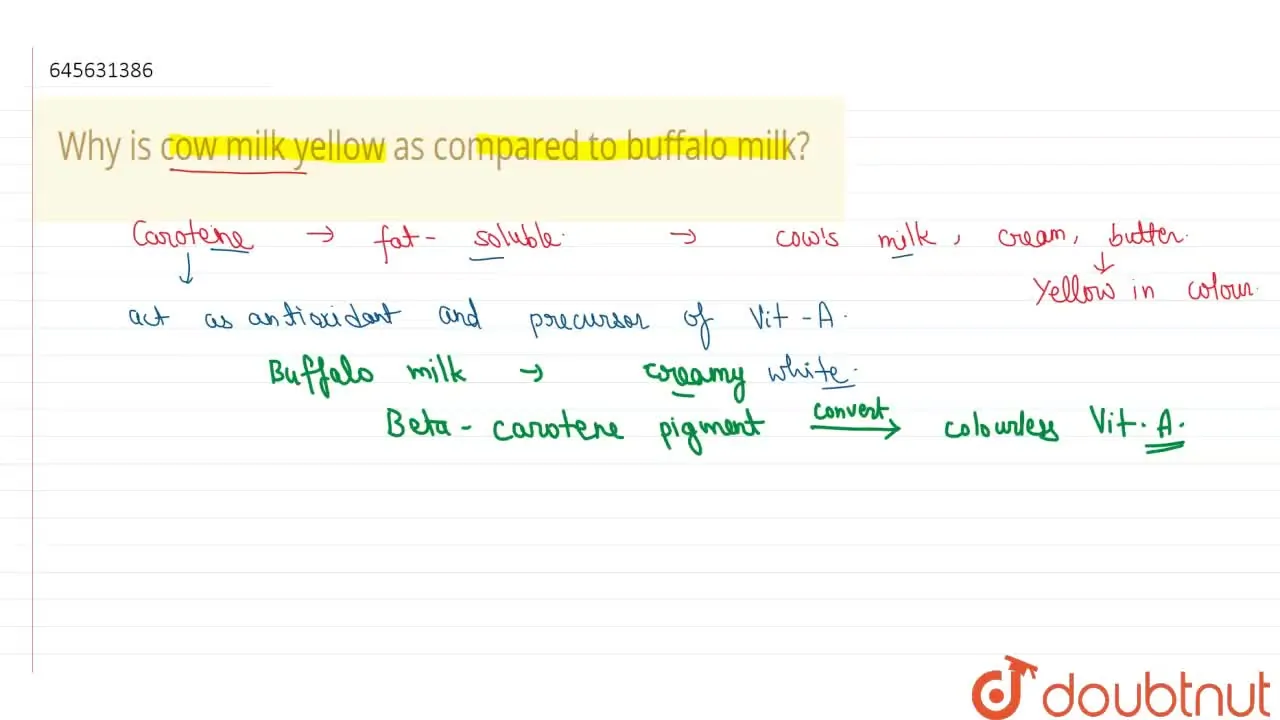 645631386
Why is cow milk yellow as compared to buffalo milk?
Carotene → fat- soluble. → cow's milk, cream, butter.
↓ ↓
Yellow in colour.
act as antioxidant and precursor of Vit-A.
Buffalo milk → creamy white.
Beta-carotene pigment convert → colourless Vit.A.
doubtnut